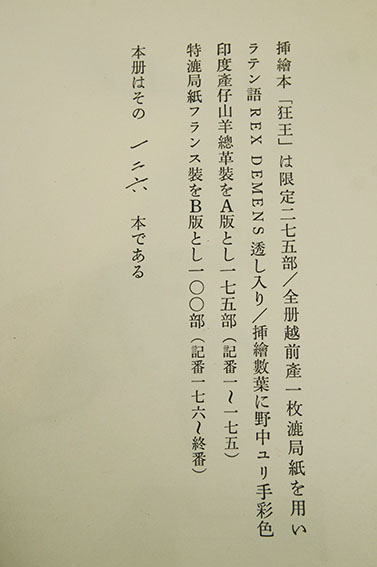 挿繪本「狂王」は限定二七五部/全册越前產一枚漉局紙を用い
ラテン語 REX DEMENS 透し入り/挿繪數葉に野中ユリ手彩色
印度產仔山羊總革裝をA版とし一七五部(記番一〜一七五)
特漉局紙フランス裝をB版とし一〇〇部(記番一七六〜終番)
本册はその 一二六 本である